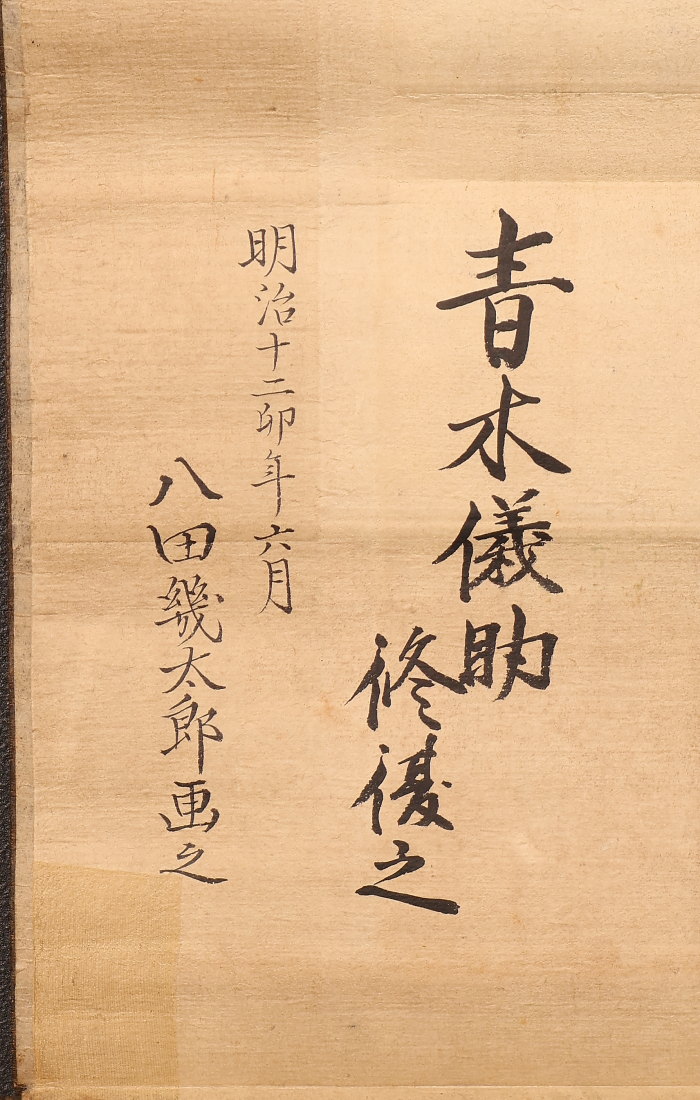 青木儀助
修復之
明治十二卯年六月
八田幾太郎画之